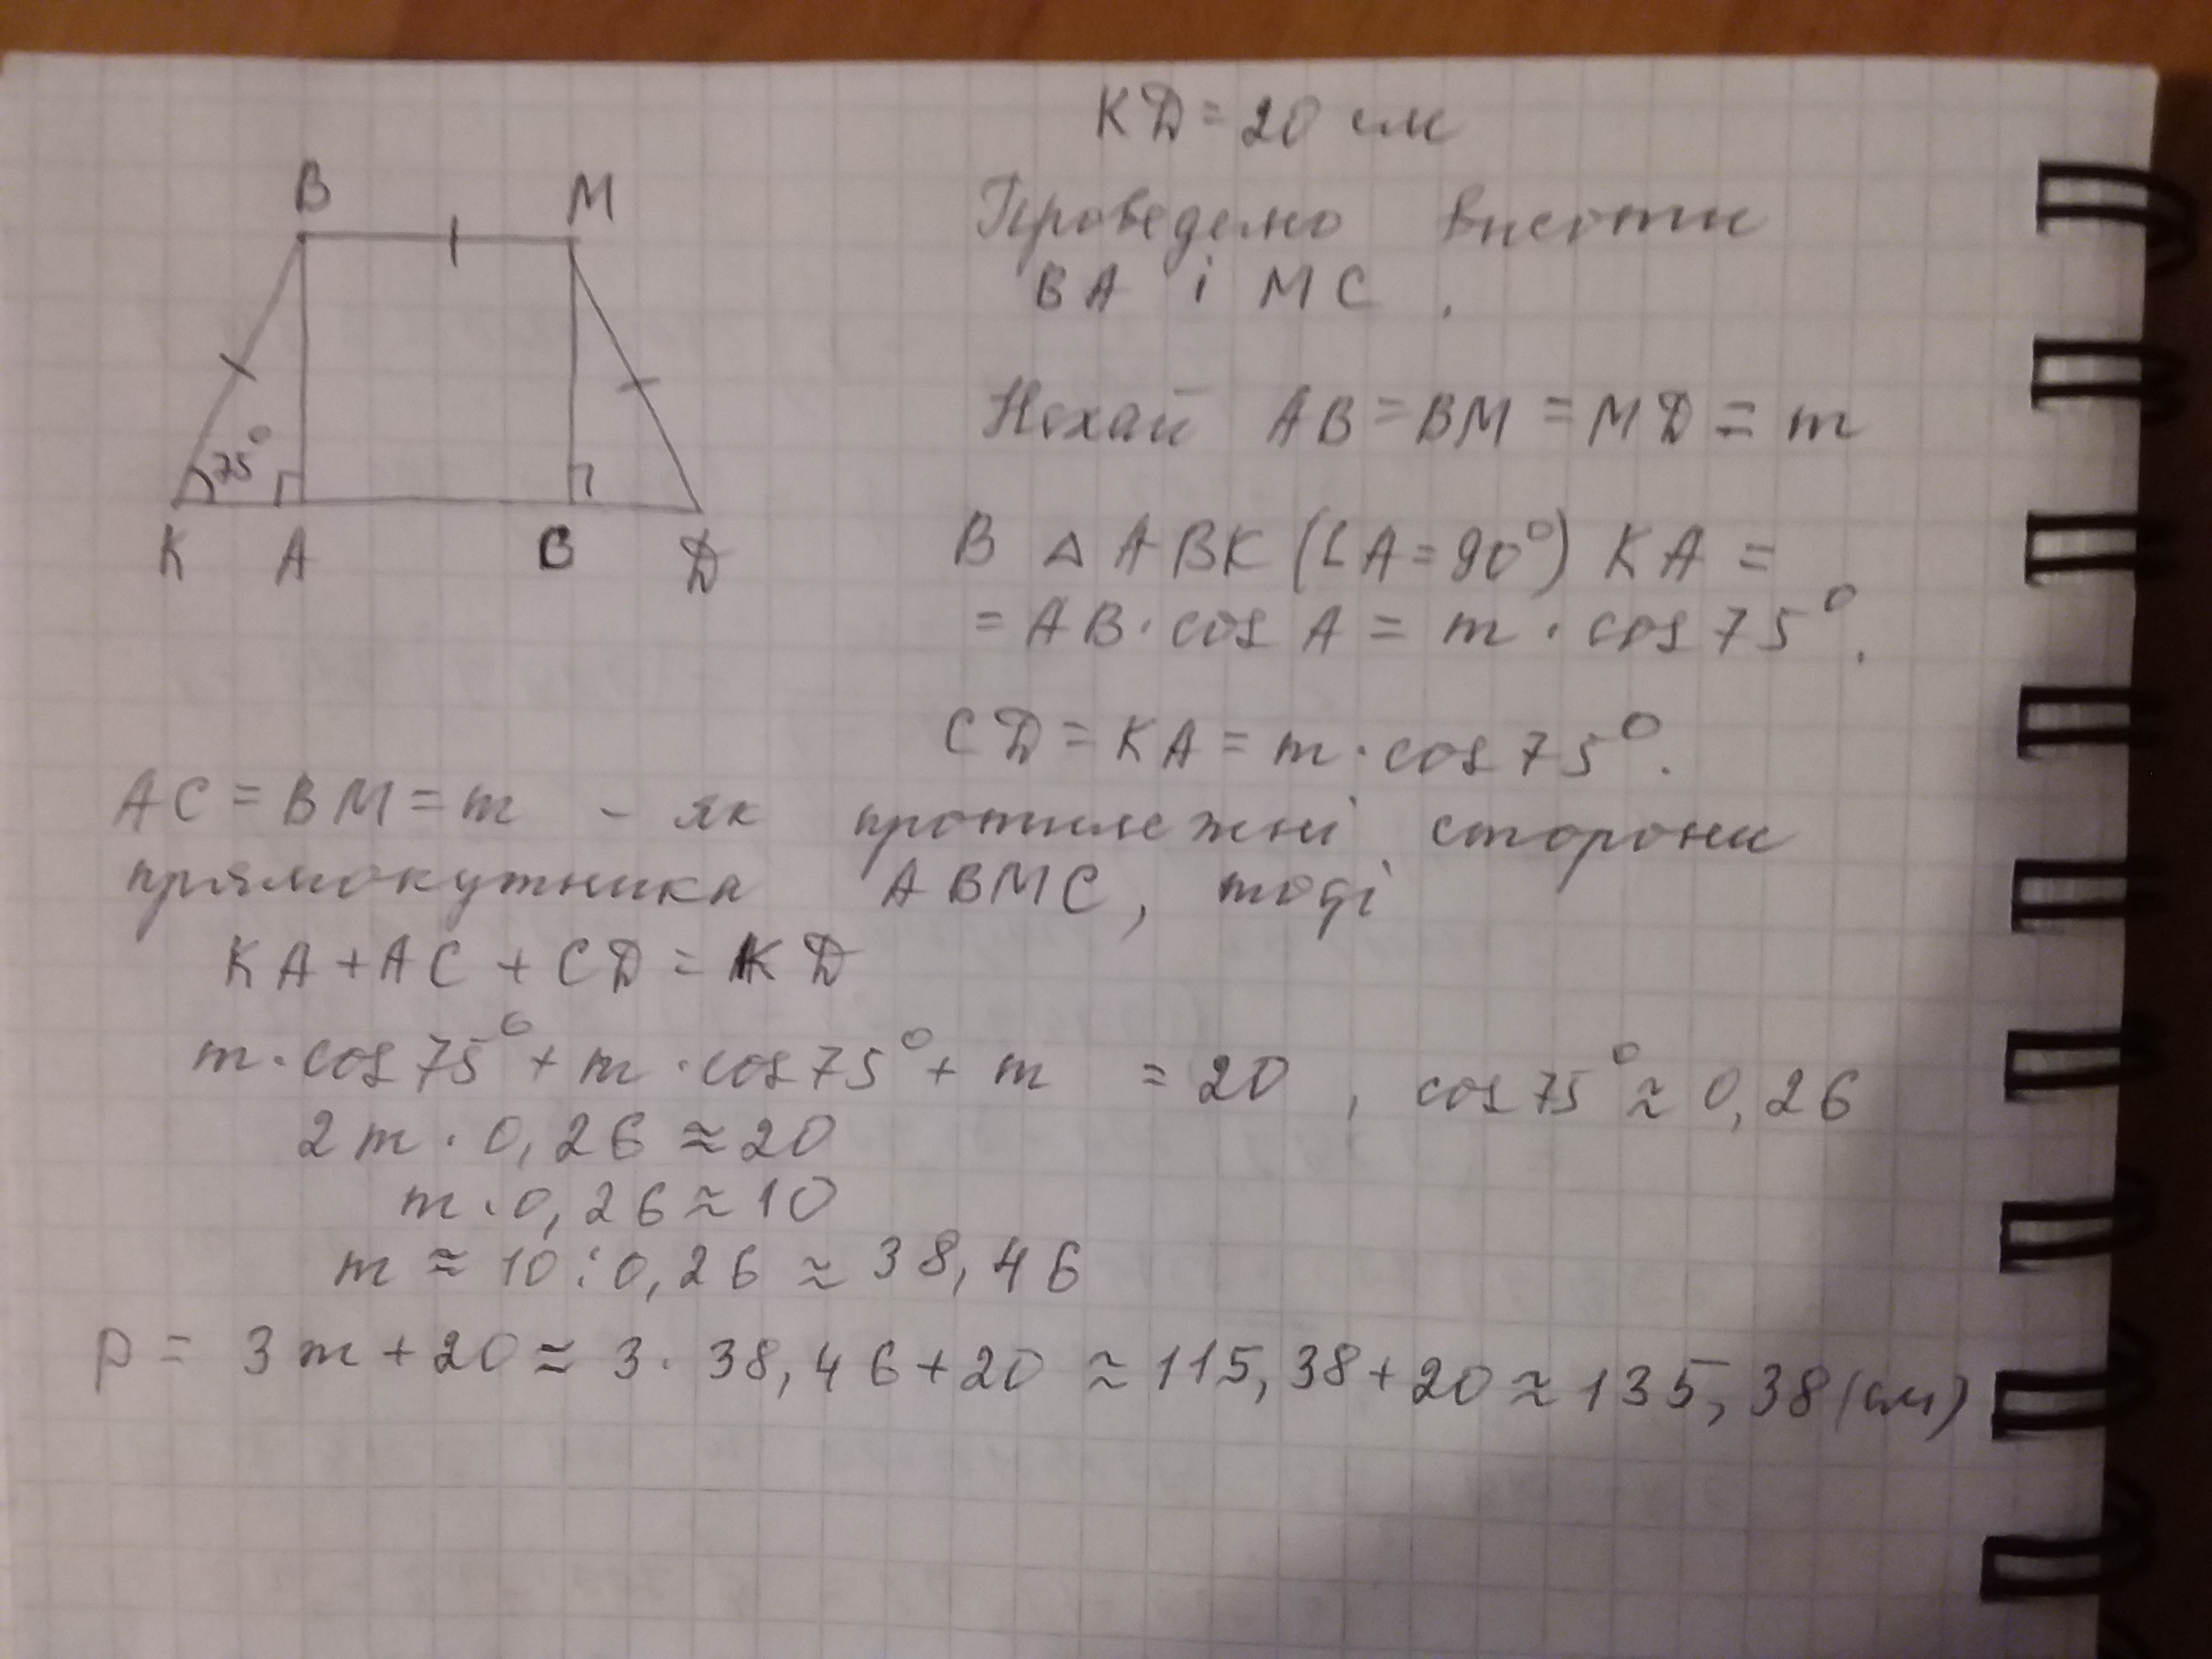 B M
75°
K A C D
KD = 20 см
Проведемо висоти
BA і MC .
Нехай AB = BM = MD = m
В △ ABK (∠A = 90°) KA =
= AB · cos A = m · cos 75° .
CD = KA = m · cos 75° .
AC = BM = m – як протилежні сторони
прямокутника ABMC, тоді
KA + AC + CD = KD
m · cos 75° + m · cos 75° + m = 20 , cos 75° ≈ 0,26
2m · 0,26 ≈ 20
m · 0,26 ≈ 10
m ≈ 10 : 0,26 ≈ 38,46
P = 3m + 20 ≈ 3 · 38,46 + 20 ≈ 115,38 + 20 ≈ 135,38 (см)